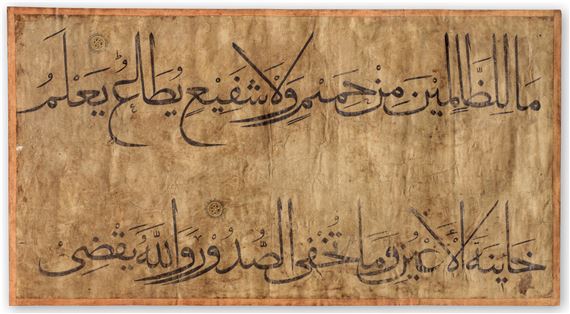 مَا لِلظَّالِمِيْنَ مِنْ حَمِيْمٍ وَلَا شَفِيْعٍ يُطَاعُ يَعْلَمُ
خَاينَةَ الْأَعْيُنِ وَمَا تُخْفِى الصُّدُوْرُ وَاللهُ يَقْضِىْ